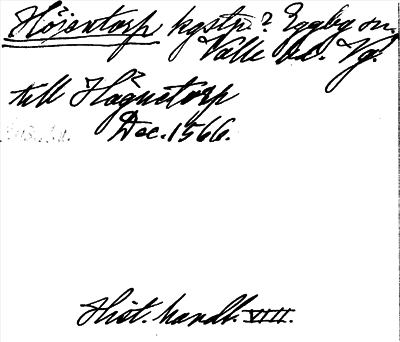 Höjentorp kgstp.? Eggby sn,
Valle hd. Vg.
till Högnetorp
Dec. 1566.
Hist. handl. VIII.